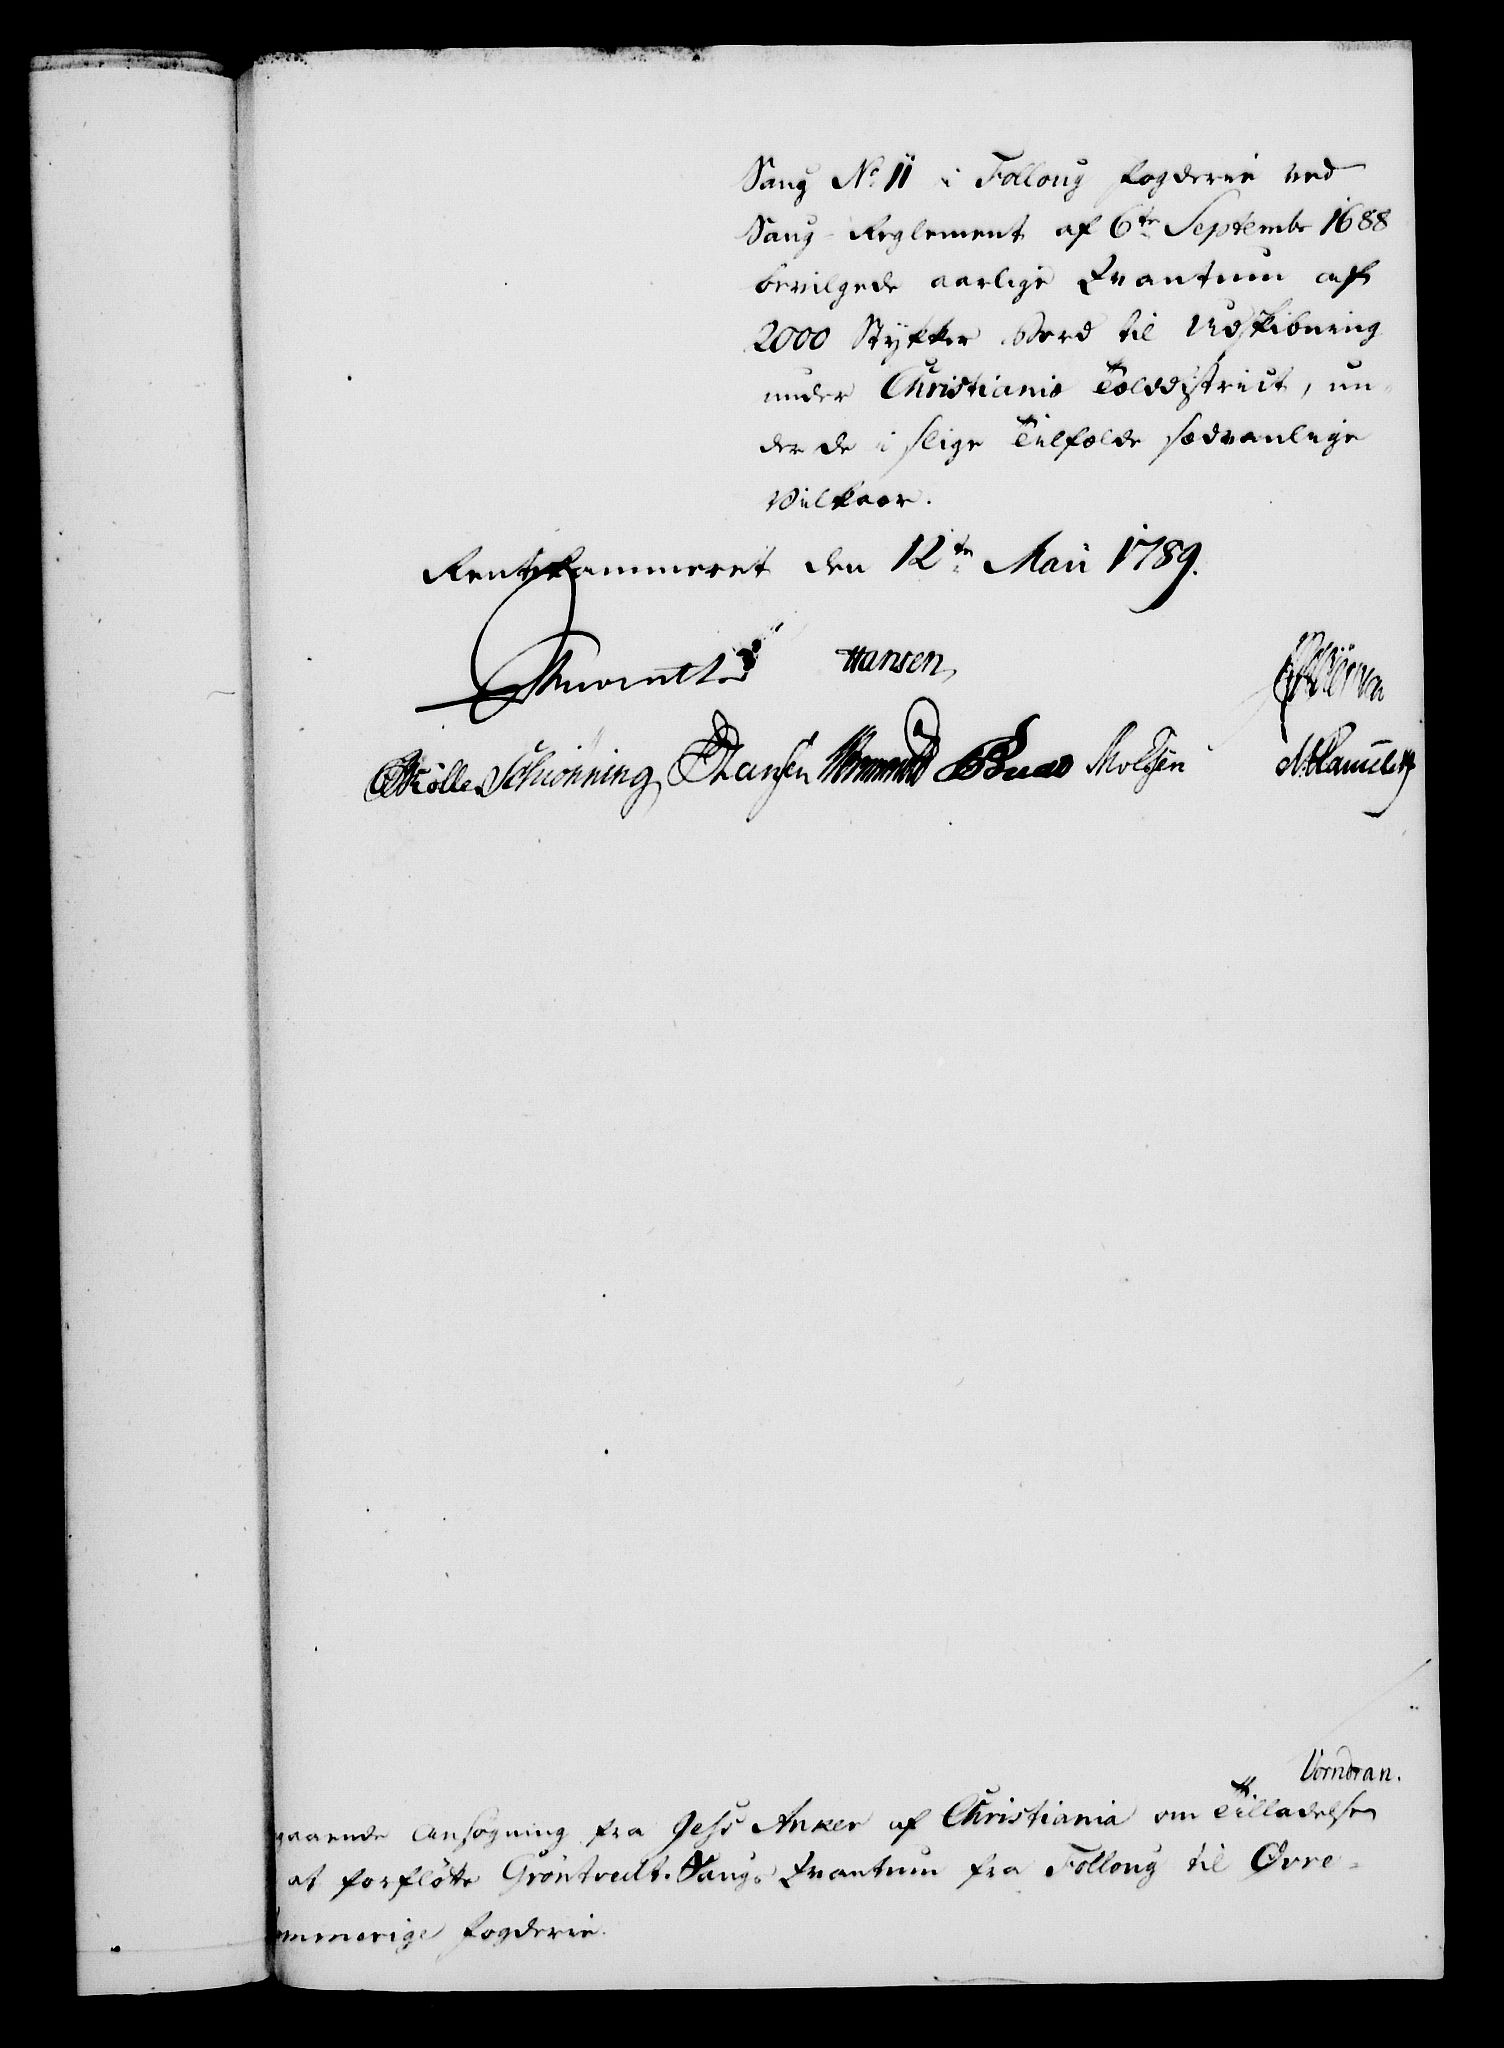 Saug No. 11 i Folloug fogderie ved
Saug-Reglement af 6te Septembr 1688
bevilgede aarlige Qvantum af
2000 Stykker Bord til Udskibning
under Christianiæ Tolddistrict, un-
der de i slige Tilfælde sædvanlige
Vilkaar.
Rentekammeret den 12te Maii 1789.
Hansen
Müller Schiönning Hansen Moldsen
Vorndran.
gaaende Ansøgning fra Jess Anker af Christiania om Tilladelse
at forflötte Gröntvedt-Saugs Qvantum fra Follong til Øvre-
ommerige fogderie.